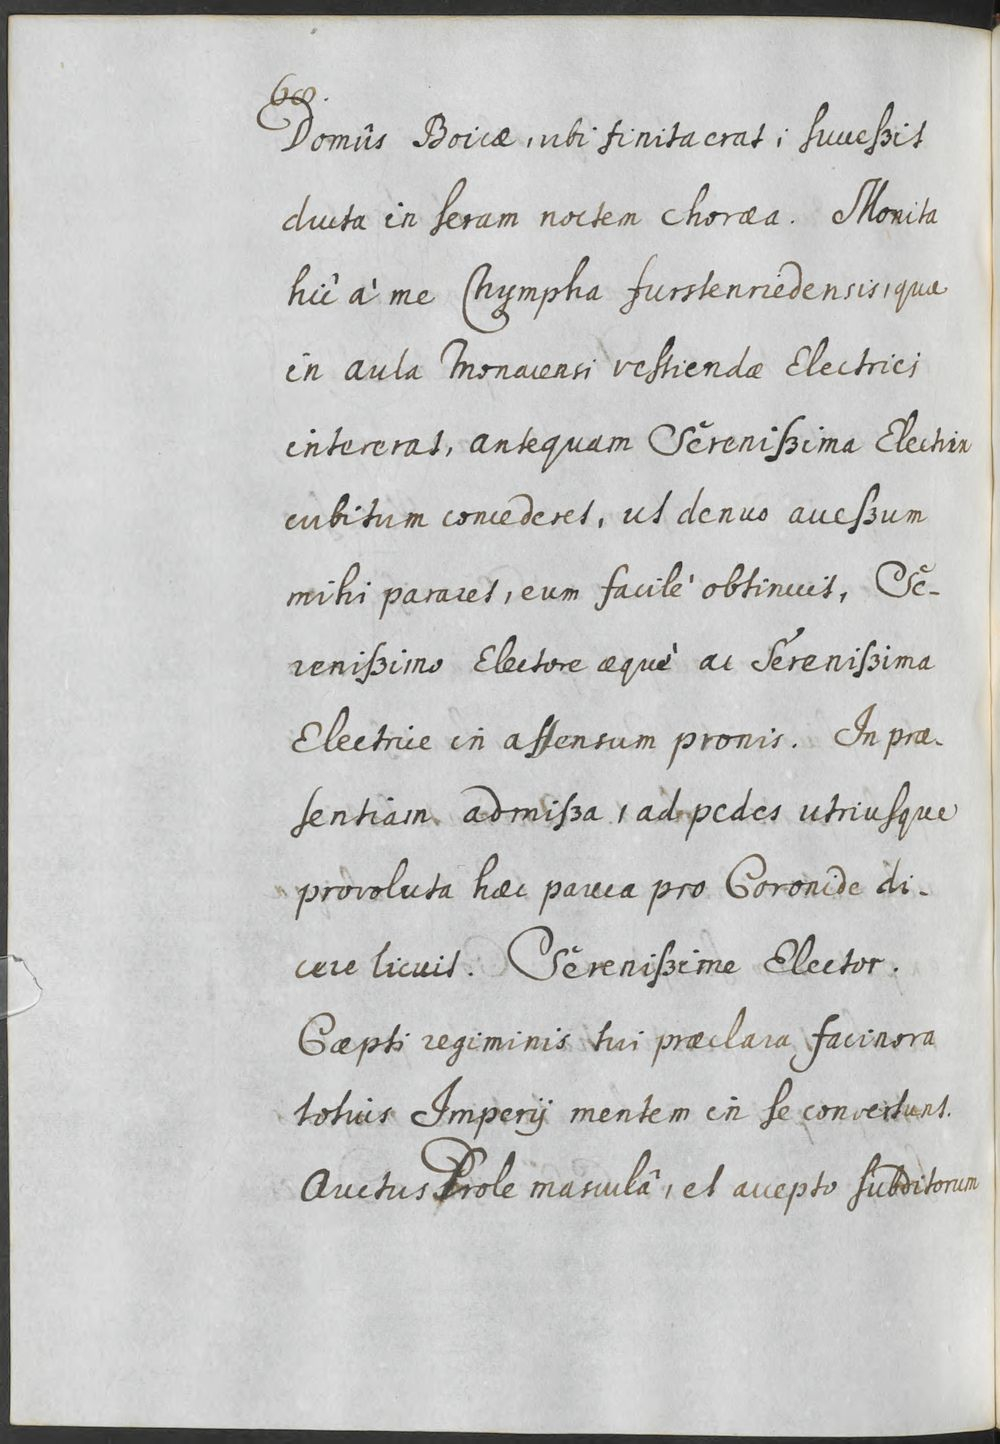 68.
Domûs Boicæ, ubi finita erat, successit
ducta in seram noctem choræa. Monita
hic à me Nympha furstenriedensis, quæ
in aula Monacensi vestiendæ Electrici
intererat, antequam Serenissima Electrix
cubitum concederet, ut denuo accessum
mihi pararet, eum facilè obtinuit, Se-
renissimo Electore æquè ac Serenissima
Electrice in assensum pronis. In præ-
sentiam admissa, ad pedes utriusque
provoluta hæc pauca pro Coronide di-
cere licuit. Serenissime Elector.
Cæpti regiminis tui præclara facinora
totius Imperij mentem in se convertunt.
Auctus Prole masculâ, et accepto subditorum